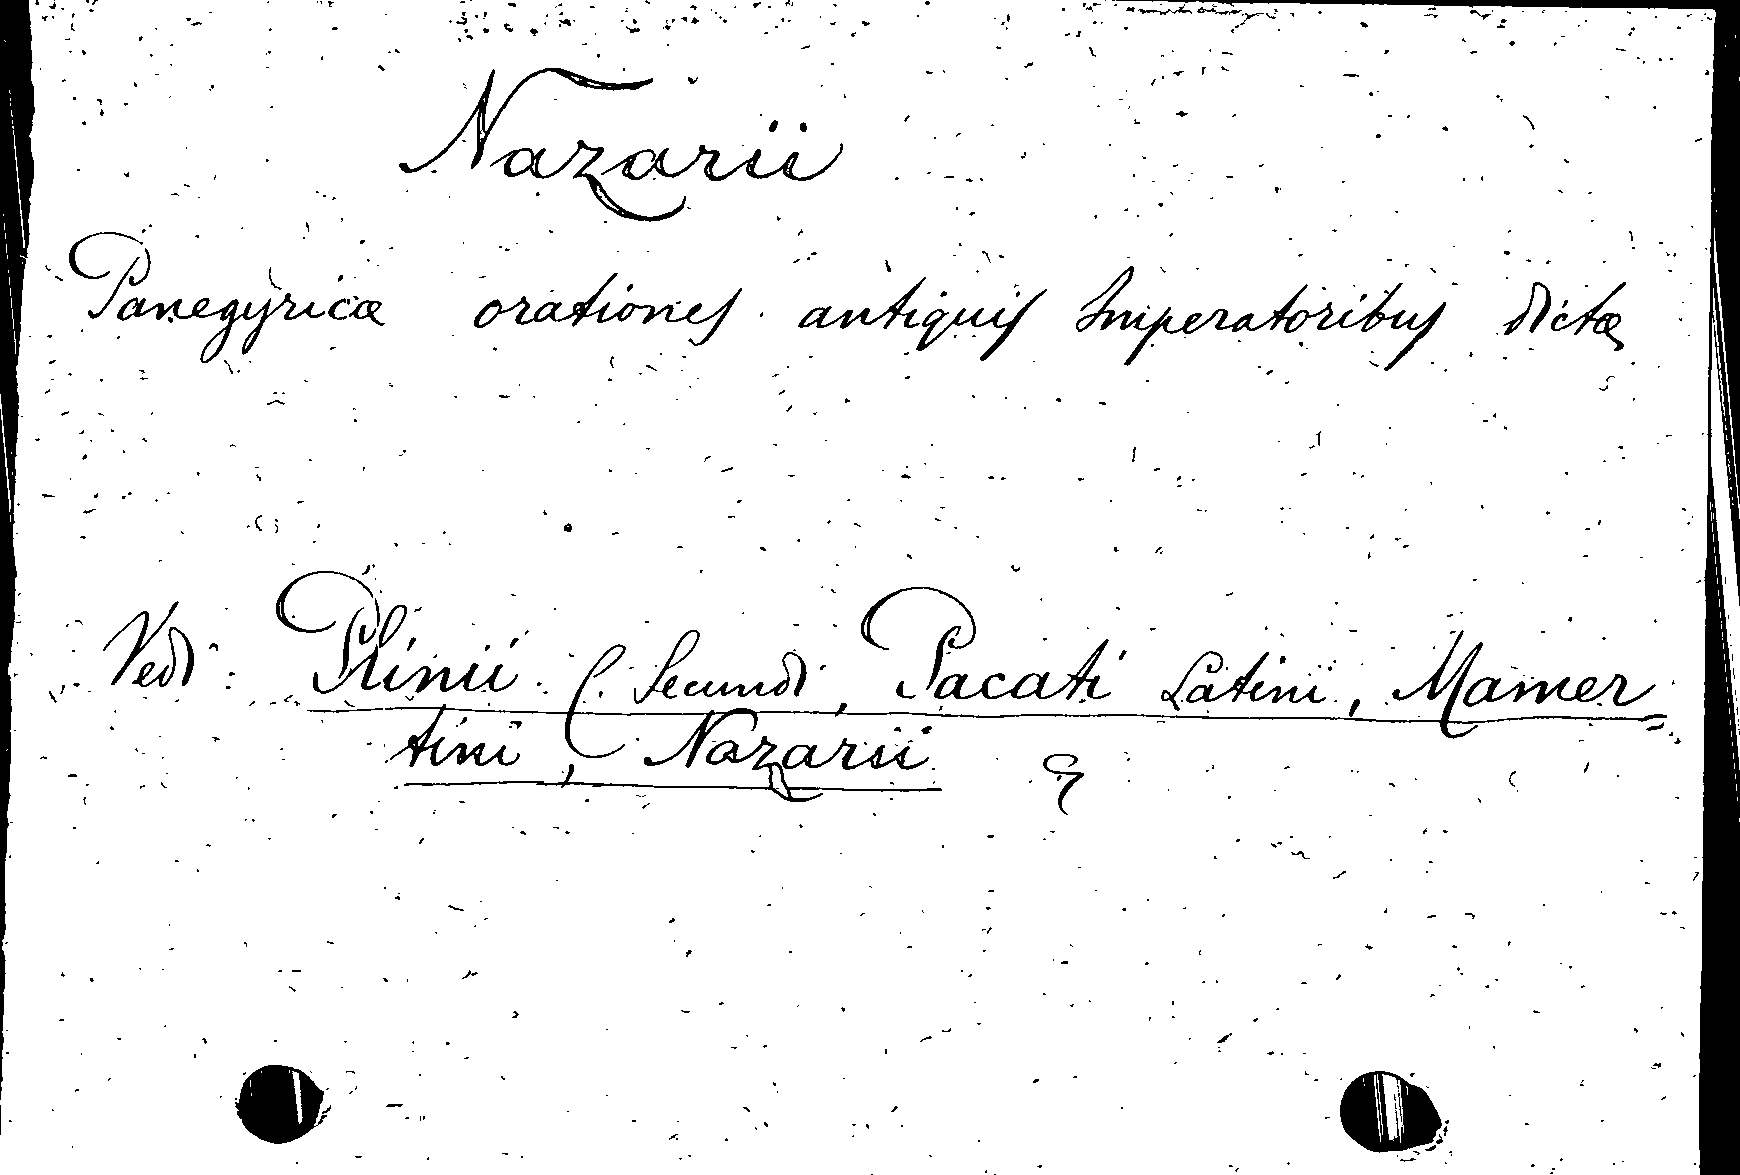 Nazarii
Panegyricæ orationes antiquis Imperatoribus dictæ
Vedi: Plinii C. Secundi, Pacati Latini, Mamer=
tini, Nazarii